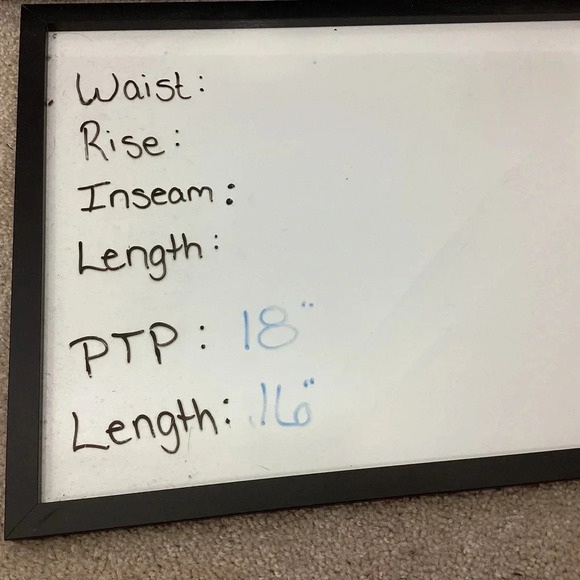 Waist:
Rise:
Inseam:
Length:
PTP: 18"
Length: 16"